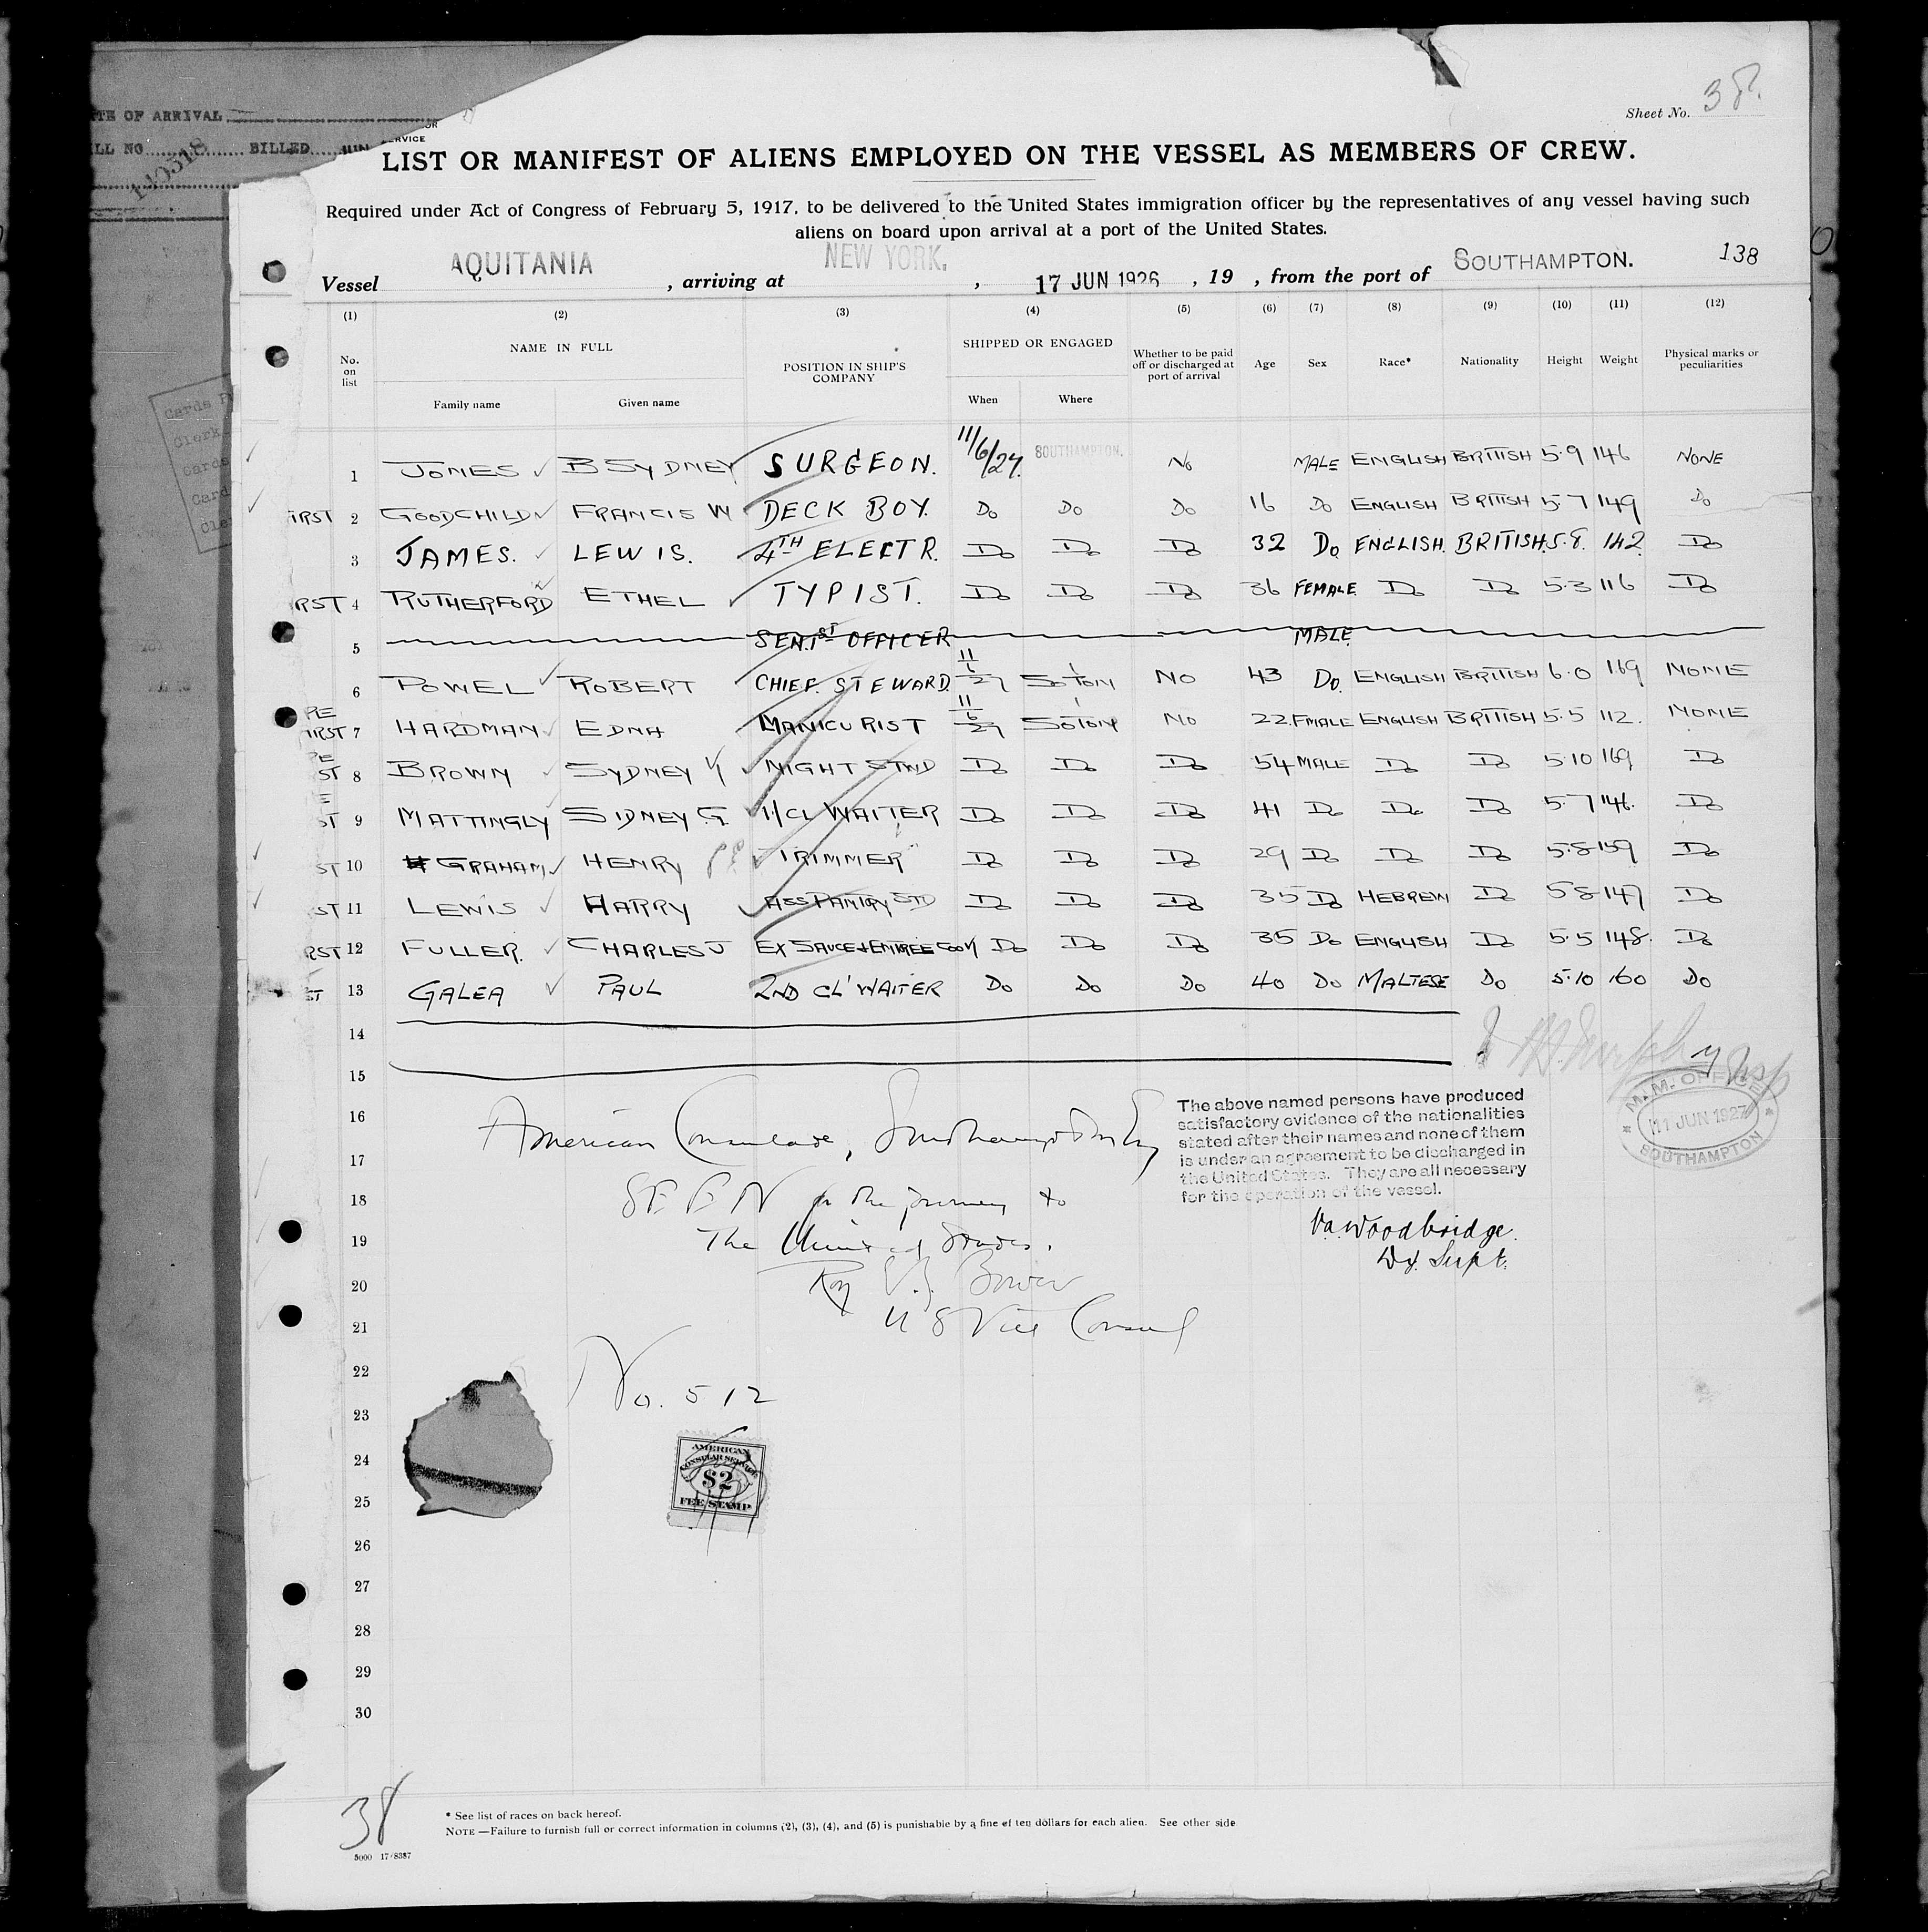 Sheet No. 38.
TE OF ARRIVAL
LL NO. 140518 BILLED JUN
RVICE
LIST OR MANIFEST OF ALIENS EMPLOYED ON THE VESSEL AS MEMBERS OF CREW.
Required under Act of Congress of February 5, 1917, to be delivered to the United States immigration officer by the representatives of any vessel having such
aliens on board upon arrival at a port of the United States.
Vessel AQUITANIA, arriving at NEW YORK, 17 JUN 1926, 19 , from the port of SOUTHAMPTON. 138
(1) (2) (3) (4) (5) (6) (7) (8) (9) (10) (11) (12)
No. on list NAME IN FULL POSITION IN SHIP'S COMPANY SHIPPED OR ENGAGED Whether to be paid off or discharged at port of arrival Age Sex Race* Nationality Height Weight Physical marks or peculiarities
Family name Given name When Where
1 JONES B SYDNEY SURGEON. 11/6/27. SOUTHAMPTON. No MALE ENGLISH BRITISH 5·9 146 NONE
IRST 2 GOODCHILD FRANCIS W DECK BOY. Do Do Do 16 Do ENGLISH BRITISH 5·7 149 Do
3 JAMES. LEWIS. 4TH ELECTR. Do Do Do 32 Do ENGLISH. BRITISH. 5·8. 142 Do
RST 4 RUTHERFORD ETHEL TYPIST. Do Do Do 36 FEMALE Do Do 5·3 116 Do
5 SEN. 1ST OFFICER MALE.
6 POWEL ROBERT CHIEF. STEWARD. 11/6/27 SOTON NO 43 Do. ENGLISH BRITISH 6·0 169 NONE
RE IRST 7 HARDMAN EDNA MANICURIST 11/6/27 SOTON NO 22 FMALE ENGLISH BRITISH 5·5 112. NONE
ST 8 BROWN SYDNEY NIGHT STWD Do Do Do 54 MALE Do Do 5·10 169 Do
ST 9 MATTINGLY SIDNEY G. 1/CL WAITER Do Do Do 41 Do Do Do 5·7 146. Do
ST 10 GRAHAM HENRY TRIMMER Do Do Do 29 Do Do Do 5·8 159 Do
ST 11 LEWIS HARRY ASS PANTRY STD Do Do Do 35 Do HEBREW Do 5 8 147 Do
RST 12 FULLER. CHARLES J EX SAUCE & ENTREE COOK Do Do Do 35 Do ENGLISH Do 5·5 148. Do
ST 13 GALEA PAUL 2ND CL' WAITER Do Do Do 40 Do MALTESE Do 5·10 160 Do
14
15
16
17
18
19
20
21
22
23
24
25
26
27
28
29
30
Murphy
M.M. OFFICE
11 JUN 1927
SOUTHAMPTON
American Consulate, Southampton, Eng
SEEN for the journey to
The United States.
Roy Bower
U S Vice Consul
No. 512
The above named persons have produced
satisfactory evidence of the nationalities
stated after their names and none of them
is under an agreement to be discharged in
the United States. They are all necessary
for the operation of the vessel.
Woodbridge.
Dy. Supt.
AMERICAN
CONSULAR SERVICE
$2
FEE STAMP
38
* See list of races on back hereof.
NOTE —Failure to furnish full or correct information in columns (2), (3), (4), and (5) is punishable by a fine of ten dollars for each alien. See other side
5000 17/8387